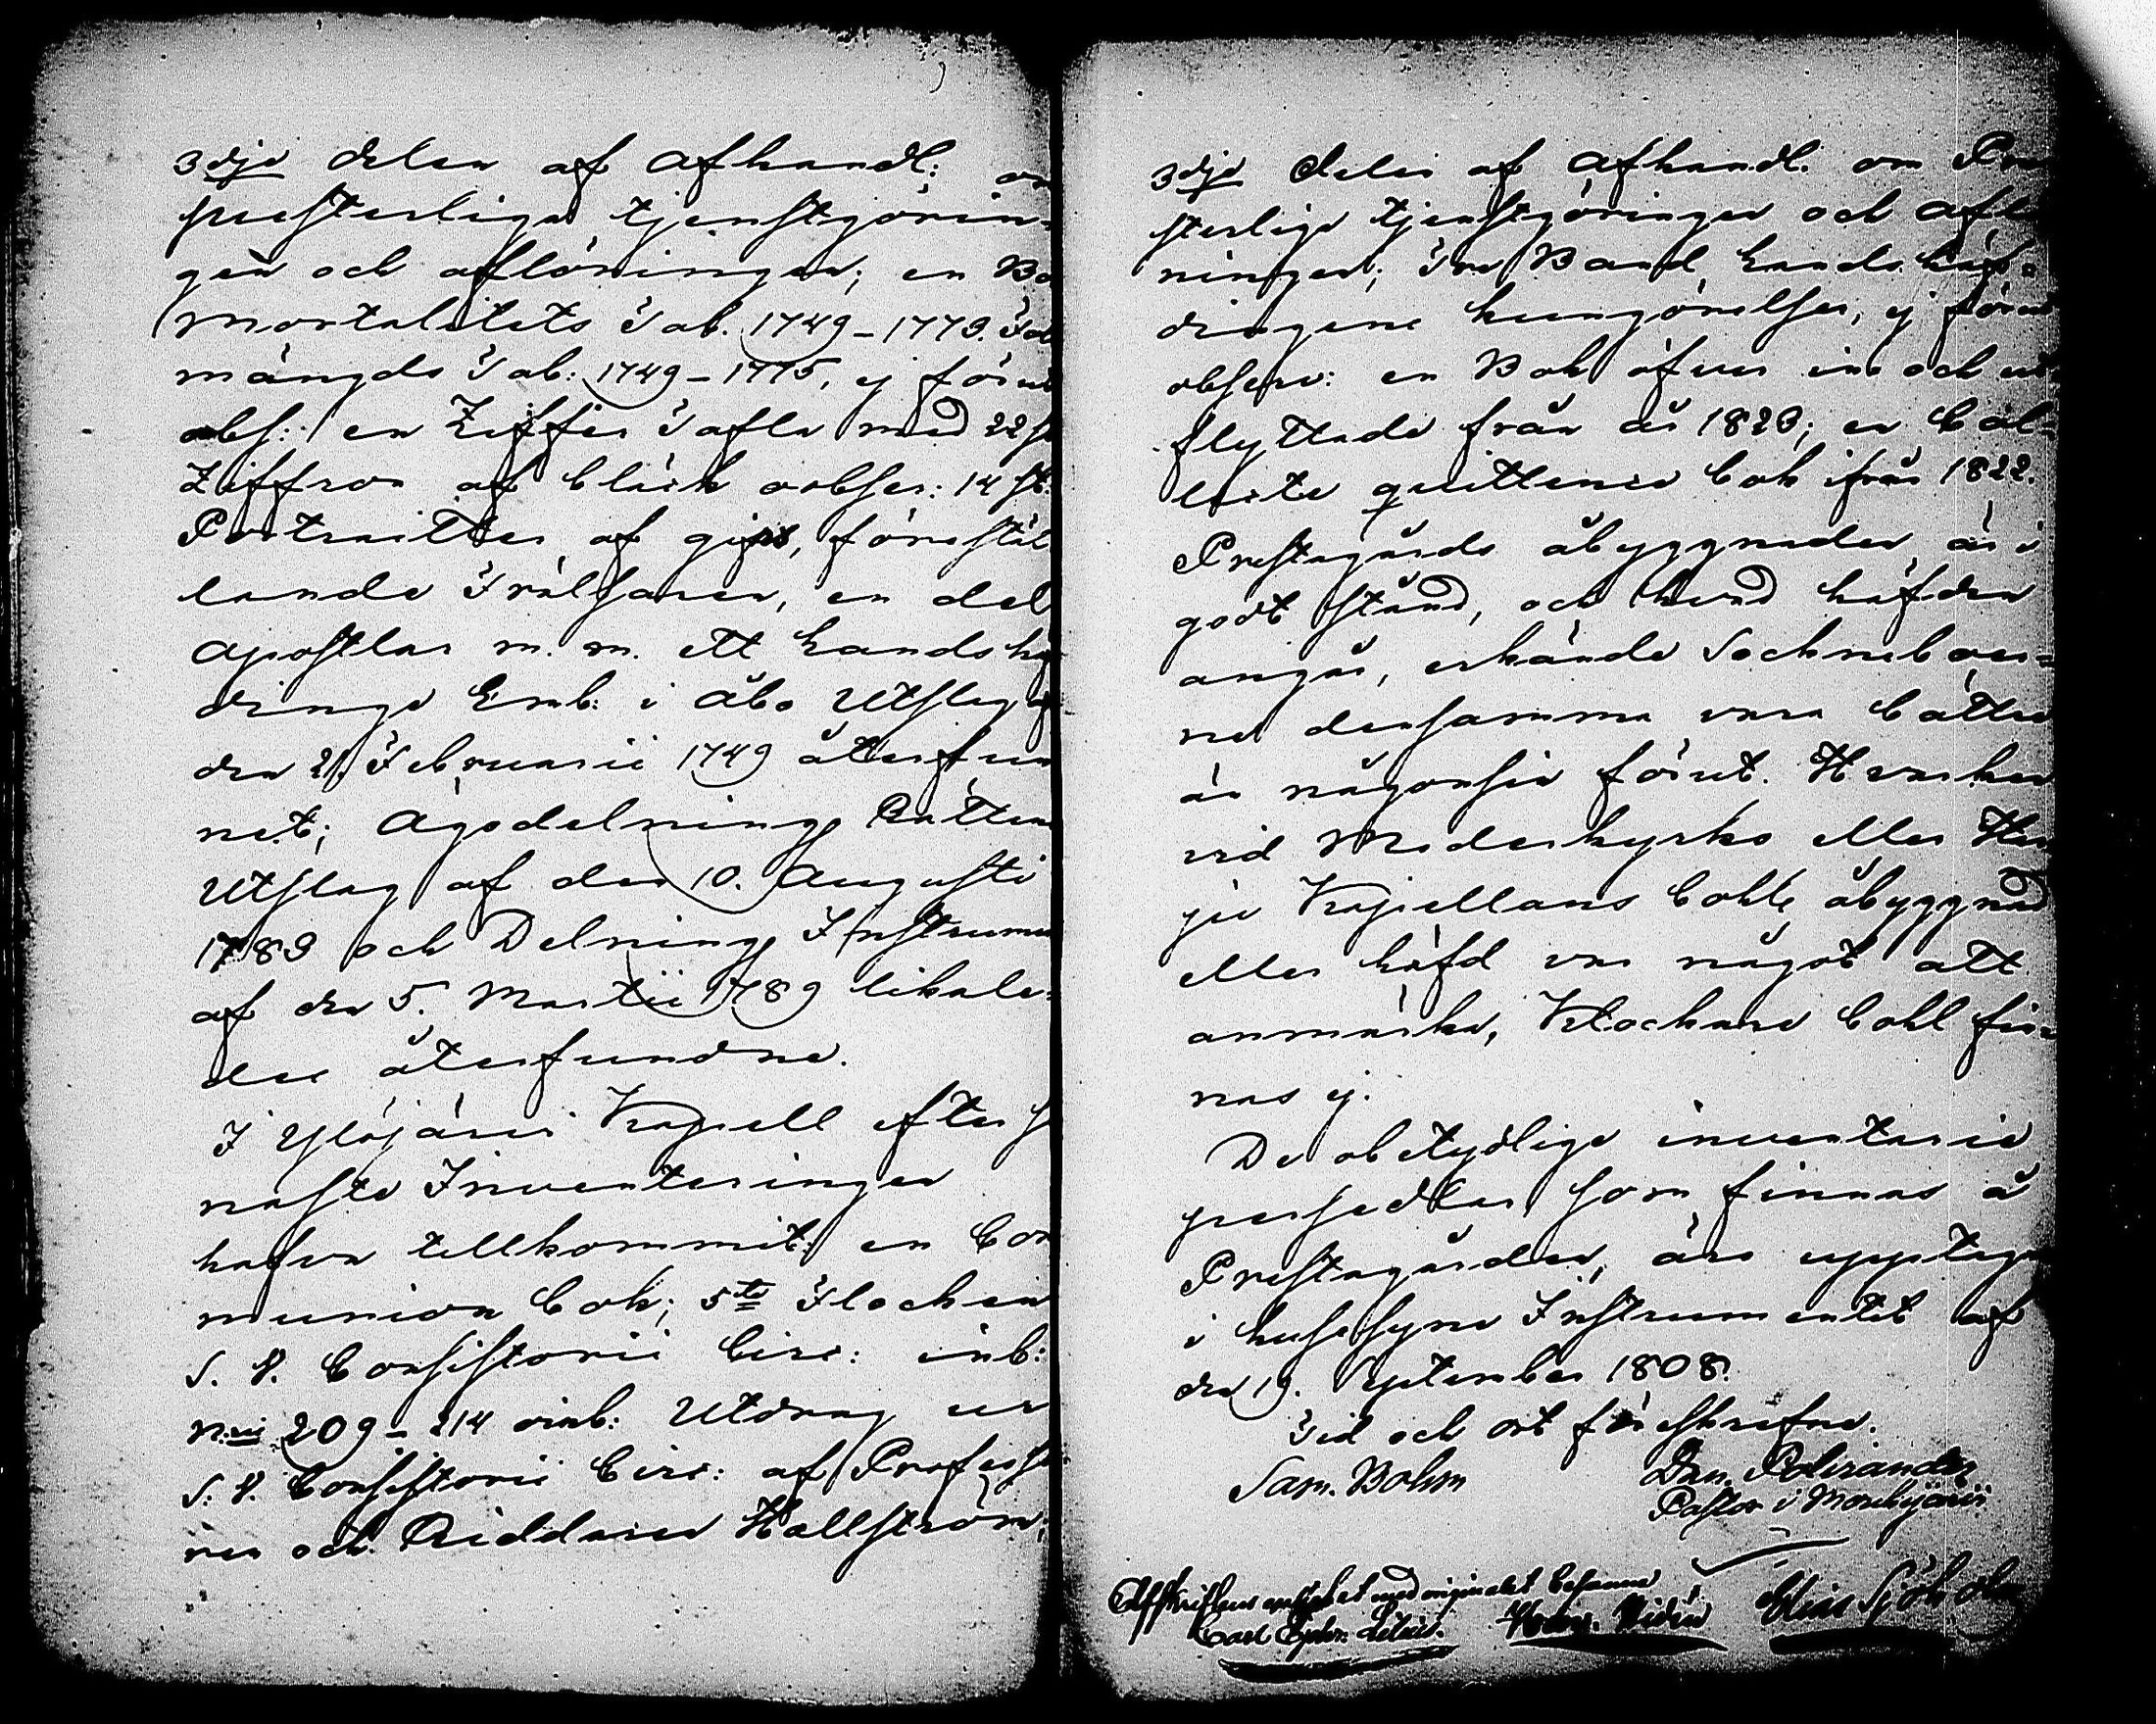 3dje delen af afhandl: om
presterliga tjenstgörin=
gen och aflöningen; en Bo
Mortalitets Tab. 1749-1773. Fol
mängds Tab: 1749-1775, ej förut
obs: en Ziffer Tafla med 22 st
Ziffror af bläck obser: 14 st:
Portraitter af gips, förestäl
lande Frälsaren, en del
Apostlar m. m. ett Landshöf
dinge Emb: i Åbo Utslag af
den 21. Februarii 1749 återfun
net; Ägodelnings Rättens
Utslag af den 10. Augusti
1783 och Delnings Instrument
af den 5. Martii 1789 likale=
des återfundne.
I Ylöjärvi Kapell efter s
nasta Inventeringen
hafva tillkommit: en Com
munion bok; 5te Flocken
S. V. Consistorii Circ: inb:
N:ris 209-214 oinb: Utdrag ur
S. V. Consistorii Circ: af Professo
ren och Riddaren Hällström;
3dje delen af afhandl. om Pre
sterliga tjenstgöringen och aflö
ningen; Tre Band Landshöf=
dingens kungörelser, ej förut
observ: en Bok öfver in och ut
flyttade från år 1823; en Col=
lecte quittence bok ifrån 1822.
Prestagårds åbyggnaden är i
godt stånd, och hvad häfden
angår, erkände Sockneboer=
ne densamma vara bättre
än någonsin förut. Hvarken
vid Moderkyrko eller Har
ju Kapellans bohle åbyggnad
eller häfd var något att
anmärka, Klockare bohl fin=
nas ej.
De obetydliga inventarie
persedlar som finnas å
Prestagården, äro upptagne
i husesyns Instrumentet af
den 19. September 1808.
Tid och ort föreskrefne.
Sam. Bohm Dan. Polviander
Pastor i Mouhijärvi
Afskriftens enlighet med originalet betanne
Carl Ephr. Lilius. Widén Elias Sjöholm